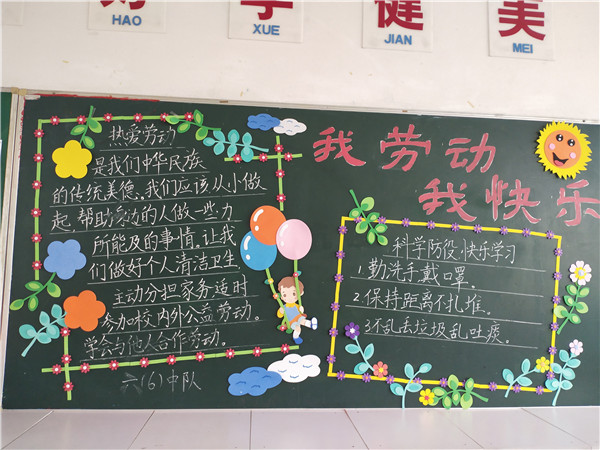 HAO
XUE
健
JIAN
美
MEI
热爱劳动
是我们中华民族
的传统美德、我们应该从小做
起,帮助劳动的人做一些力
所能及的事情.让我
们做好个人清洁卫生
主动分担家务适时
参加校内外公益劳动。
学会与他人合作劳动。
六(6)中队
我劳动
我快乐
科学防役·快乐学习
1勤洗手戴口罩。
2保持距离不扎堆。
3不乱丢垃圾乱吐痰。